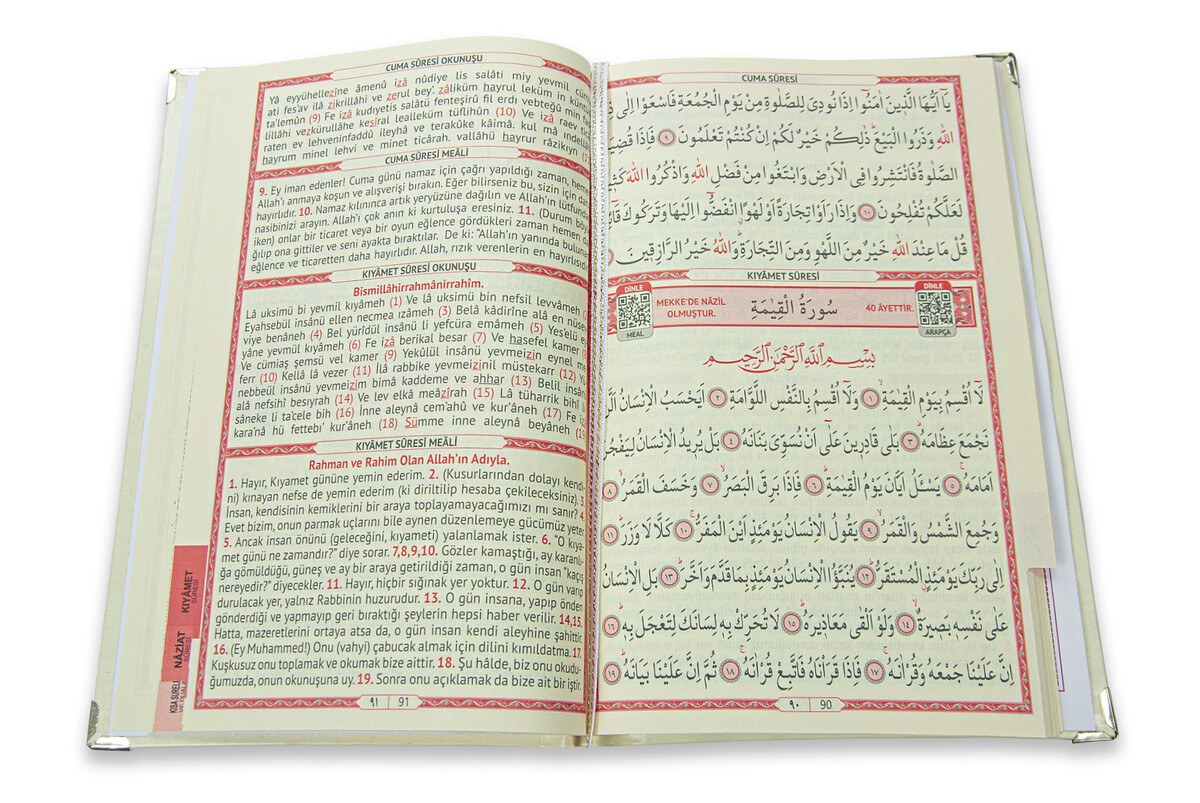 CUMA SÛRESİ
يَٓا اَيُّهَا الَّذٖينَ اٰمَنُٓوا اِذَا نُودِيَ لِلصَّلٰوةِ مِنْ يَوْمِ الْجُمُعَةِ فَاسْعَوْا اِلٰى
اللّٰهِ وَذَرُوا الْبَيْعَؕ ذٰلِكُمْ خَيْرٌ لَكُمْ اِنْ كُنْتُمْ تَعْلَمُونَ ﴿٩﴾ فَاِذَا
الصَّلٰوةُ فَانْتَشِرُوا فِي الْاَرْضِ وَابْتَغُوا مِنْ فَضْلِ اللّٰهِ وَاذْكُرُوا اللّٰهَ
لَعَلَّكُمْ تُفْلِحُونَ ﴿١٠﴾ وَاِذَا رَاَوْا تِجَارَةً اَوْ لَهْوًاۨ انْفَضُّٓوا اِلَيْهَا وَتَرَكُوكَ
قُلْ مَا عِنْدَ اللّٰهِ خَيْرٌ مِنَ اللَّهْوِ وَمِنَ التِّجَارَةِؕ وَاللّٰهُ خَيْرُ الرَّازِقٖينَ
KIYÂMET SÛRESİ
DİNLE
MEAL
MEKKE'DE NÂZİL
OLMUŞTUR.
سُورَةُ الْقِيٰمَةِ
40 ÂYETTİR.
DİNLE
ARAPÇA
بِسْمِ اللّٰهِ الرَّحْمٰنِ الرَّحٖيمِ
لَٓا اُقْسِمُ بِيَوْمِ الْقِيٰمَةِۙ ﴿١﴾ وَلَٓا اُقْسِمُ بِالنَّفْسِ اللَّوَّامَةِ ﴿٢﴾ اَيَحْسَبُ الْاِنْسَانُ
نَجْمَعَ عِظَامَهُؕ ﴿٣﴾ بَلٰى قَادِرٖينَ عَلٰٓى اَنْ نُسَوِّيَ بَنَانَهُ ﴿٤﴾ بَلْ يُرٖيدُ الْاِنْسَانُ
اَمَامَهُۚ ﴿٥﴾ يَسْـَٔلُ اَيَّانَ يَوْمُ الْقِيٰمَةِؕ ﴿٦﴾ فَاِذَا بَرِقَ الْبَصَرُۙ ﴿٧﴾ وَخَسَفَ الْقَمَرُۙ ﴿٨﴾
وَجُمِعَ الشَّمْسُ وَالْقَمَرُۙ ﴿٩﴾ يَقُولُ الْاِنْسَانُ يَوْمَئِذٍ اَيْنَ الْمَفَرُّۚ ﴿١٠﴾ كَلَّا لَا وَزَرَؕ ﴿١١﴾
اِلٰى رَبِّكَ يَوْمَئِذٍۨ الْمُسْتَقَرُّؕ ﴿١٢﴾ يُنَبَّؤُا الْاِنْسَانُ يَوْمَئِذٍ بِمَا قَدَّمَ وَاَخَّرَؕ ﴿١٣﴾ بَلِ الْاِنْسَانُ
عَلٰى نَفْسِهٖ بَصٖيرَةٌۙ ﴿١٤﴾ وَلَوْ اَلْقٰى مَعَاذٖيرَهُؕ ﴿١٥﴾ لَا تُحَرِّكْ بِهٖ لِسَانَكَ لِتَعْجَلَ بِهٖؕ ﴿١٦﴾
اِنَّ عَلَيْنَا جَمْعَهُ وَقُرْاٰنَهُۚ ﴿١٧﴾ فَاِذَا قَرَاْنَاهُ فَاتَّبِعْ قُرْاٰنَهُۚ ﴿١٨﴾ ثُمَّ اِنَّ عَلَيْنَا بَيَانَهُؕ ﴿١٩﴾
٩٠ 90
CUMA SÛRESİ OKUNUŞU
Yâ eyyühellezîne âmenû izâ nûdiye lis salâti miy yevmil
ati fes'av ilâ zikrillâhi ve zerul bey'. zâliküm hayrul leküm in
ta'lemûn (9) Fe izâ kudıyetis salâtü fenteşirû fil erdı vebteğû min
lillâhi vezkürullâhe kesîral lealleküm tüflihûn (10) Ve izâ raev
raten ev lehveninfaddû ileyhâ ve terakûke kâimâ. kul mâ
hayrum minel lehvi ve minet ticârah. vallâhü hayrur râzikıyn
CUMA SÛRESİ MEÂLİ
9. Ey iman edenler! Cuma günü namaz için çağrı yapıldığı zaman,
Allah'ı anmaya koşun ve alışverişi bırakın. Eğer bilirseniz bu, sizin için
hayırlıdır. 10. Namaz kılınınca artık yeryüzüne dağılın ve Allah'ın
nasibinizi arayın. Allah'ı çok anın ki kurtuluşa eresiniz. 11. (Durum
iken) onlar bir ticaret veya bir oyun eğlence gördükleri zaman hemen
ğılıp ona gittiler ve seni ayakta bıraktılar. De ki: "Allah'ın yanında
eğlence ve ticaretten daha hayırlıdır. Allah, rızık verenlerin en
KIYÂMET SÛRESİ OKUNUŞU
Bismillâhirrahmânirrahîm.
Lâ uksimü bi yevmil kıyâmeh (1) Ve lâ uksimü bin nefsil levvâmeh
Eyahsebül insânü ellen necmea ızâmeh (3) Belâ kâdirîne alâ en
viye benâneh (4) Bel yürîdül insânü li yefcüra emâmeh (5) Yes'elü
yâne yevmül kıyâmeh (6) Fe izâ berikal besar (7) Ve hasefel kamer
Ve cümiaş şemsü vel kamer (9) Yekûlül insânü yevmeizin eynel
ferr (10) Kellâ lâ vezer (11) İlâ rabbike yevmeizinil müstekarr (12)
nebbeül insânü yevmeizim bimâ kaddeme ve ahhar (13) Belil
alâ nefsihî besıyrah (14) Ve lev elkâ meâzîrah (15) Lâ tüharrik bihî
sâneke li ta'cele bih (16) İnne aleynâ cem'ahû ve kur'âneh (17) Fe
kara'nâ hü fettebı' kur'âneh (18) Sümme inne aleynâ beyâneh
KIYÂMET SÛRESİ MEÂLİ
Rahman ve Rahim Olan Allah'ın Adıyla.
1. Hayır, Kıyamet gününe yemin ederim. 2. (Kusurlarından dolayı kendi-
ni) kınayan nefse de yemin ederim (ki diriltilip hesaba çekileceksiniz). 3.
İnsan, kendisinin kemiklerini bir araya toplayamayacağımızı mı sanır? 4.
Evet bizim, onun parmak uçlarını bile aynen düzenlemeye gücümüz yeter.
5. Ancak insan önünü (geleceğini, kıyameti) yalanlamak ister. 6. "O kıya-
met günü ne zamandır?" diye sorar. 7,8,9,10. Gözler kamaştığı, ay karanlı-
ğa gömüldüğü, güneş ve ay bir araya getirildiği zaman, o gün insan "kaçış
nereyedir?" diyecekler. 11. Hayır, hiçbir sığınak yer yoktur. 12. O gün varıp
durulacak yer, yalnız Rabbinin huzurudur. 13. O gün insana, yapıp önden
gönderdiği ve yapmayıp geri bıraktığı şeylerin hepsi haber verilir. 14,15.
Hatta, mazeretlerini ortaya atsa da, o gün insan kendi aleyhine şahittir.
16. (Ey Muhammed!) Onu (vahyi) çabucak almak için dilini kımıldatma. 17.
Kuşkusuz onu toplamak ve okumak bize aittir. 18. Şu hâlde, biz onu okudu-
ğumuzda, onun okunuşuna uy. 19. Sonra onu açıklamak da bize ait bir iştir.
٩١ 91
KIYÂMET
SÛRESİ
NÂZİAT
KISA SÛRELER